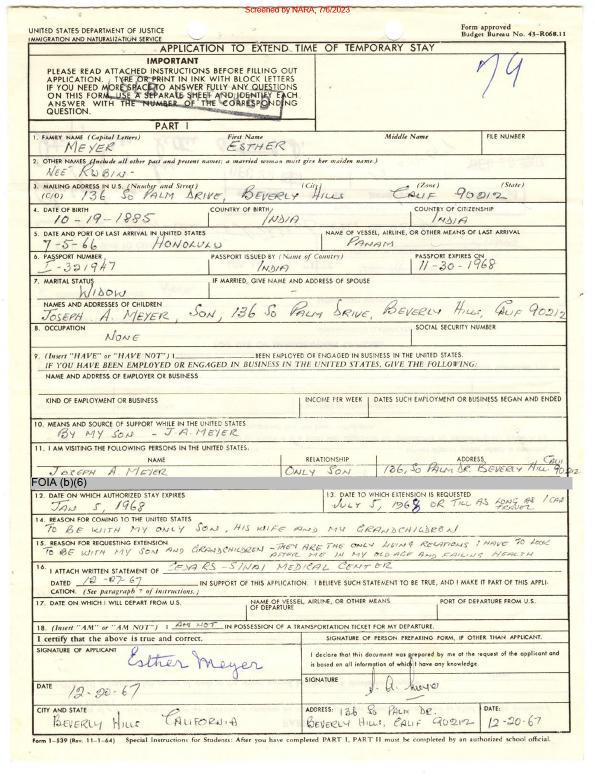 Screened by NARA, 7/6/2023
UNITED STATES DEPARTMENT OF JUSTICE
IMMIGRATION AND NATURALIZATION SERVICE
Form approved
Budget Bureau No. 43-R068.11
APPLICATION TO EXTEND TIME OF TEMPORARY STAY
IMPORTANT
PLEASE READ ATTACHED INSTRUCTIONS BEFORE FILLING OUT
APPLICATION. TYPE OR PRINT IN INK WITH BLOCK LETTERS
IF YOU NEED MORE SPACE TO ANSWER FULLY ANY QUESTIONS
ON THIS FORM, USE A SEPARATE SHEET AND IDENTIFY EACH
ANSWER WITH THE NUMBER OF THE CORRESPONDING
QUESTION.
79
PART I
1. FAMILY NAME (Capital Letters) First Name Middle Name FILE NUMBER
MEYER ESTHER
2. OTHER NAMES (Include all other past and present names; a married woman must give her maiden name.)
NEE RUBIN-
3. MAILING ADDRESS IN U.S. (Number and Street) (City) (Zone) (State)
(C/O) 136 SO PALM DRIVE, BEVERLY HILLS CALIF 90212
4. DATE OF BIRTH COUNTRY OF BIRTH COUNTRY OF CITIZENSHIP
10-19-1885 INDIA INDIA
5. DATE AND PORT OF LAST ARRIVAL IN UNITED STATES NAME OF VESSEL, AIRLINE, OR OTHER MEANS OF LAST ARRIVAL
7-5-66 HONOLULU PANAM
6. PASSPORT NUMBER PASSPORT ISSUED BY (Name of Country) PASSPORT EXPIRES ON
I-321947 INDIA 11-30-1968
7. MARITAL STATUS IF MARRIED, GIVE NAME AND ADDRESS OF SPOUSE
WIDOW -
NAMES AND ADDRESSES OF CHILDREN
JOSEPH A. MEYER, SON, 136 SO PALM DRIVE, BEVERLY HILLS, CALIF 90212
8. OCCUPATION SOCIAL SECURITY NUMBER
NONE
9. (Insert "HAVE" or "HAVE NOT") I BEEN EMPLOYED OR ENGAGED IN BUSINESS IN THE UNITED STATES.
IF YOU HAVE BEEN EMPLOYED OR ENGAGED IN BUSINESS IN THE UNITED STATES, GIVE THE FOLLOWING:
NAME AND ADDRESS OF EMPLOYER OR BUSINESS
KIND OF EMPLOYMENT OR BUSINESS INCOME PER WEEK DATES SUCH EMPLOYMENT OR BUSINESS BEGAN AND ENDED
10. MEANS AND SOURCE OF SUPPORT WHILE IN THE UNITED STATES
BY MY SON - J.A. MEYER
11. I AM VISITING THE FOLLOWING PERSONS IN THE UNITED STATES.
NAME RELATIONSHIP ADDRESS
JOSEPH A. MEYER ONLY SON 136, SO PALM DR. BEVERLY HILLS CALIF 90212
FOIA (b)(6)
12. DATE ON WHICH AUTHORIZED STAY EXPIRES 13. DATE TO WHICH EXTENSION IS REQUESTED
JAN 5, 1968 JULY 5, 1968 OR TILL AS LONG AS I CAN
14. REASON FOR COMING TO THE UNITED STATES
TO BE WITH MY ONLY SON, HIS WIFE AND MY GRANDCHILDREN
15. REASON FOR REQUESTING EXTENSION
TO BE WITH MY SON AND GRANDCHILDREN - THEY ARE THE ONLY LIVING RELATIONS I HAVE TO LOOK
AFTER ME IN MY OLD AGE AND FAILING HEALTH
16. I ATTACH WRITTEN STATEMENT OF CEDARS-SINAI MEDICAL CENTER
DATED 12-07-67 IN SUPPORT OF THIS APPLICATION. I BELIEVE SUCH STATEMENT TO BE TRUE, AND I MAKE IT PART OF THIS APPLI-
CATION. (See paragraph 7 of instructions.)
17. DATE ON WHICH I WILL DEPART FROM U.S. NAME OF VESSEL, AIRLINE, OR OTHER MEANS OF DEPARTURE PORT OF DEPARTURE FROM U.S.
18. (Insert "AM" or "AM NOT") I AM NOT IN POSSESSION OF A TRANSPORTATION TICKET FOR MY DEPARTURE.
I certify that the above is true and correct.
SIGNATURE OF PERSON PREPARING FORM, IF OTHER THAN APPLICANT.
SIGNATURE OF APPLICANT
Esther Meyer
I declare that this document was prepared by me at the request of the applicant and
is based on all information of which I have any knowledge.
SIGNATURE
J. A. Meyer
DATE
12-20-67
CITY AND STATE
BEVERLY HILLS CALIFORNIA
ADDRESS: 136 SO PALM DR.
BEVERLY HILLS, CALIF 90212
DATE:
12-20-67
Form I-539 (Rev. 11-1-64) Special Instructions for Students: After you have completed PART I, PART II must be completed by an authorized school official.